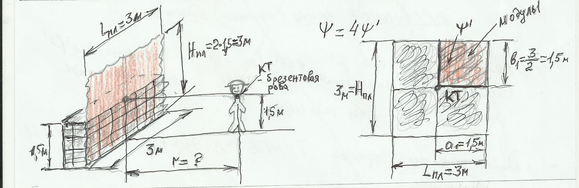 Lпл = 3м
Hпл = 2·1,5 = 3м
КТ
брезентовая
роба
1,5м
1,5м
3м
r = ?
Ψ = 4Ψ'
Ψ'
модуль 1
3м = Hпл
КТ
в₁ = 3/2 = 1,5м
a₁ = 1,5м
Lпл = 3м